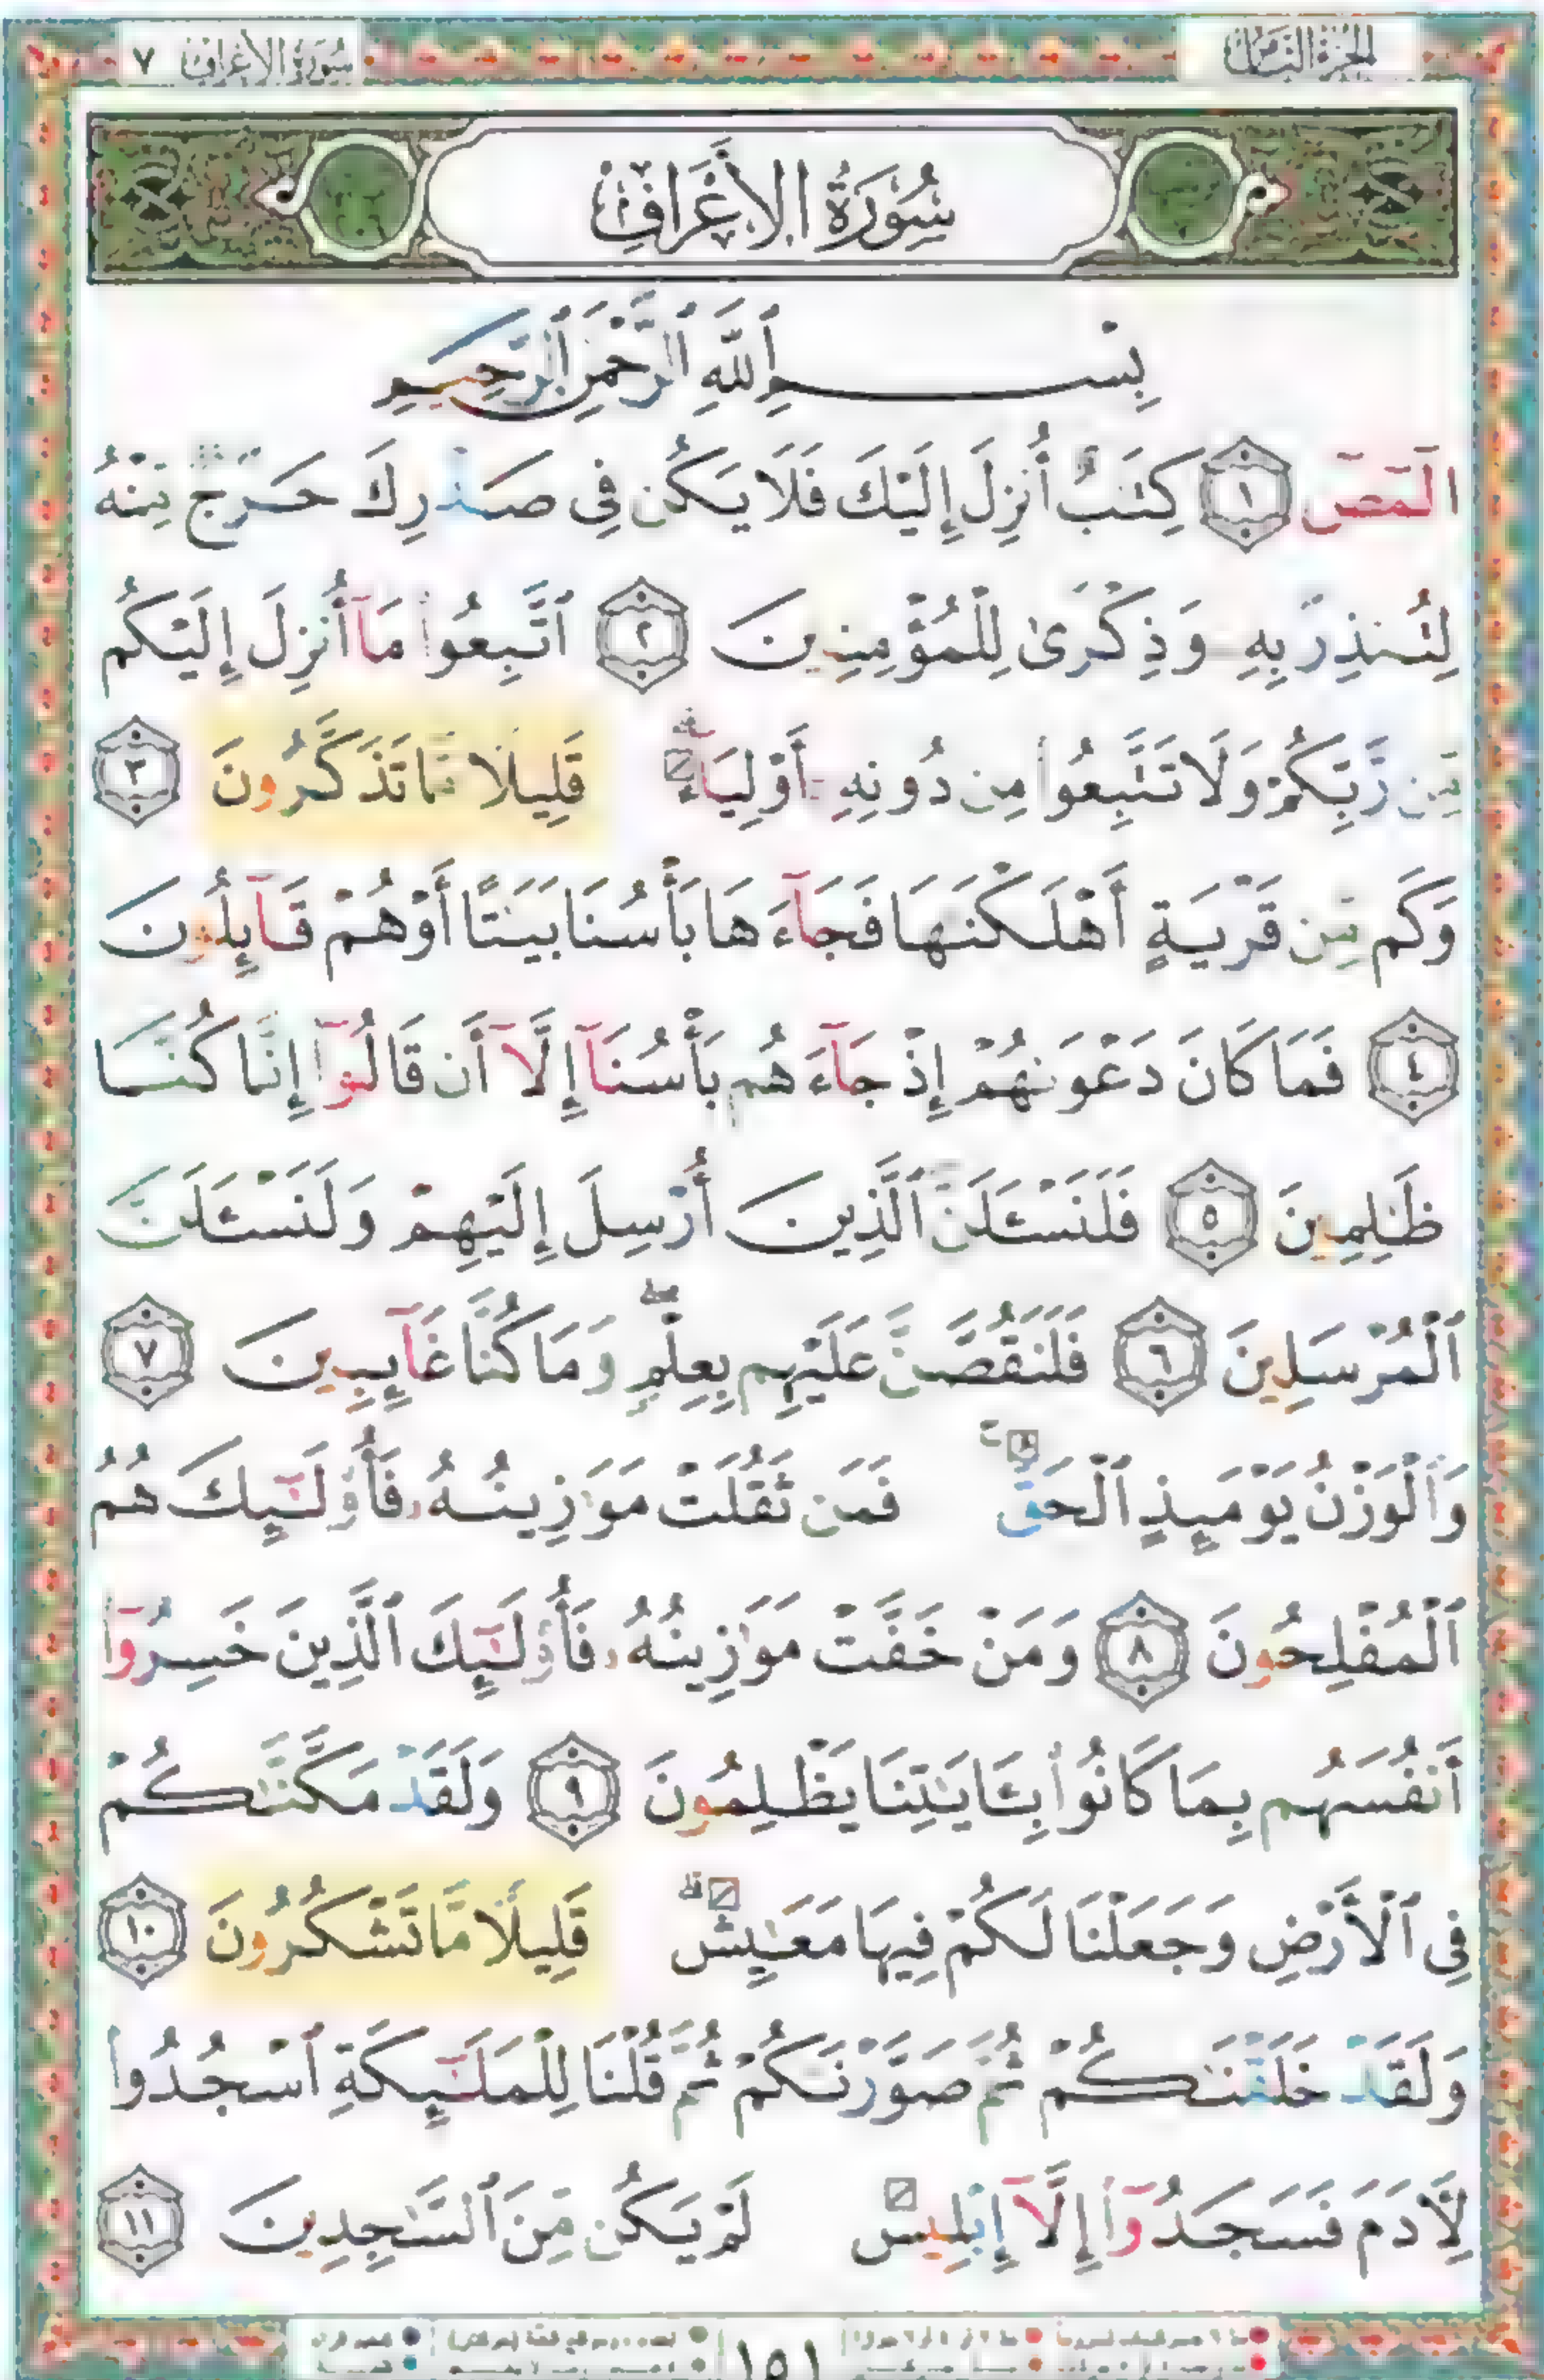 الجزء الثامن
سورة الأعراف ٧
سُورَةُ الأَعْرَافِ
بِسْمِ ٱللَّهِ ٱلرَّحْمَٰنِ ٱلرَّحِيمِ
الٓمٓصٓ ١ كِتَٰبٌ أُنزِلَ إِلَيْكَ فَلَا يَكُن فِى صَدْرِكَ حَرَجٌ مِّنْهُ
لِتُنذِرَ بِهِۦ وَذِكْرَىٰ لِلْمُؤْمِنِينَ ٢ ٱتَّبِعُوا۟ مَآ أُنزِلَ إِلَيْكُم
مِّن رَّبِّكُمْ وَلَا تَتَّبِعُوا۟ مِن دُونِهِۦٓ أَوْلِيَآءَ ۗ قَلِيلًا مَّا تَذَكَّرُونَ ٣
وَكَم مِّن قَرْيَةٍ أَهْلَكْنَٰهَا فَجَآءَهَا بَأْسُنَا بَيَٰتًا أَوْ هُمْ قَآئِلُونَ
٤ فَمَا كَانَ دَعْوَىٰهُمْ إِذْ جَآءَهُم بَأْسُنَآ إِلَّآ أَن قَالُوٓا۟ إِنَّا كُنَّا
ظَٰلِمِينَ ٥ فَلَنَسْـَٔلَنَّ ٱلَّذِينَ أُرْسِلَ إِلَيْهِمْ وَلَنَسْـَٔلَنَّ
ٱلْمُرْسَلِينَ ٦ فَلَنَقُصَّنَّ عَلَيْهِم بِعِلْمٍ ۖ وَمَا كُنَّا غَآئِبِينَ ٧
وَٱلْوَزْنُ يَوْمَئِذٍ ٱلْحَقُّ ۚ فَمَن ثَقُلَتْ مَوَٰزِينُهُۥ فَأُو۟لَٰٓئِكَ هُمُ
ٱلْمُفْلِحُونَ ٨ وَمَنْ خَفَّتْ مَوَٰزِينُهُۥ فَأُو۟لَٰٓئِكَ ٱلَّذِينَ خَسِرُوٓا۟
أَنفُسَهُم بِمَا كَانُوا۟ بِـَٔايَٰتِنَا يَظْلِمُونَ ٩ وَلَقَدْ مَكَّنَّٰكُمْ
فِى ٱلْأَرْضِ وَجَعَلْنَا لَكُمْ فِيهَا مَعَٰيِشَ ۗ قَلِيلًا مَّا تَشْكُرُونَ ١٠
وَلَقَدْ خَلَقْنَٰكُمْ ثُمَّ صَوَّرْنَٰكُمْ ثُمَّ قُلْنَا لِلْمَلَٰٓئِكَةِ ٱسْجُدُوا۟
لِـَٔادَمَ فَسَجَدُوٓا۟ إِلَّآ إِبْلِيسَ لَمْ يَكُن مِّنَ ٱلسَّٰجِدِينَ ١١
١٥١